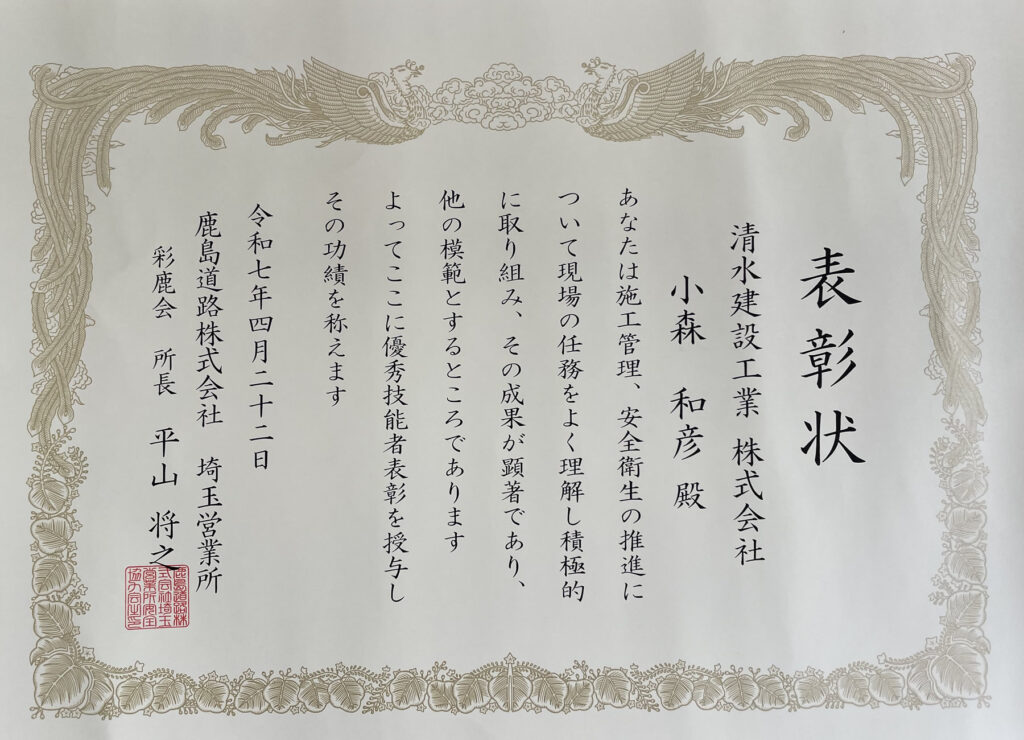 表彰状
清水建設工業 株式会社
小森 和彦 殿
あなたは施工管理、安全衛生の推進に
ついて現場の任務をよく理解し積極的
に取り組み、その成果が顕著であり、
他の模範とするところであります
よってここに優秀技能者表彰を授与し
その功績を称えます
令和七年四月二十二日
鹿島道路株式会社 埼玉営業所
彩鹿会 所長 平山 将之
鹿島道路株
式会社埼玉
営業所安全
協力会之印